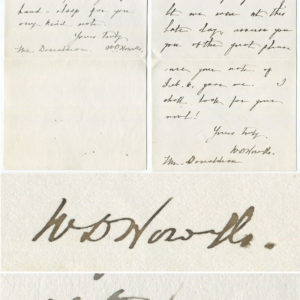 hand - clasp for you
very kind note.
Yours truly,
WD Howells.
Mr. Donaldson.
we were at this
late day, assure you
you of the great pleas-
ure your note of
Feb. 6, gave me. I
shall look for your
next!
Yours truly,
WD Howells.
Mr. Donaldson
WD Howells.